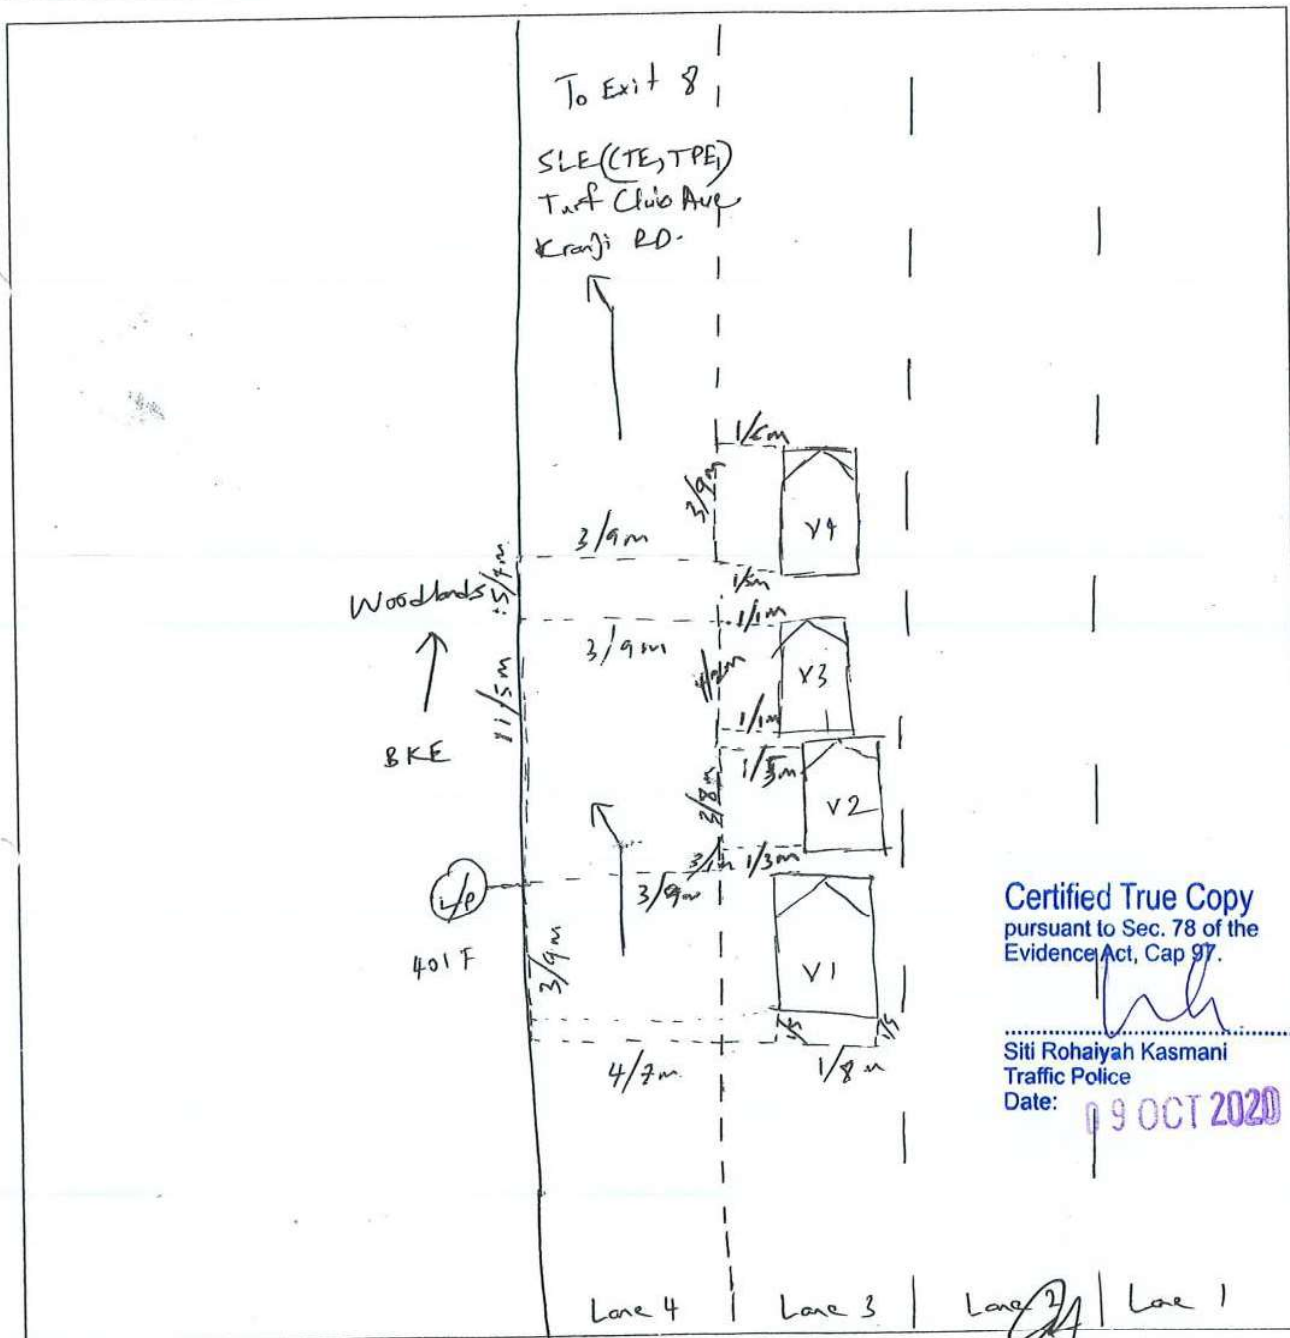 To Exit 8
SLE (CTE, TPE)
Turf Club Ave
Kranji RD.
1/6m
3/9m
V4
3/9m
1/5m
Woodlands
1/1m
3/9m
V3
11/5m
1/1m
BKE
1/5m
3/8m
V2
1/3m
L/P
3/9m
401F
3/9m
V1
4/7m
1/8m
Certified True Copy
pursuant to Sec. 78 of the
Evidence Act, Cap 97.
Siti Rohaiyah Kasmani
Traffic Police
Date: 09 OCT 2020
Lane 4
Lane 3
Lane 2
Lane 1